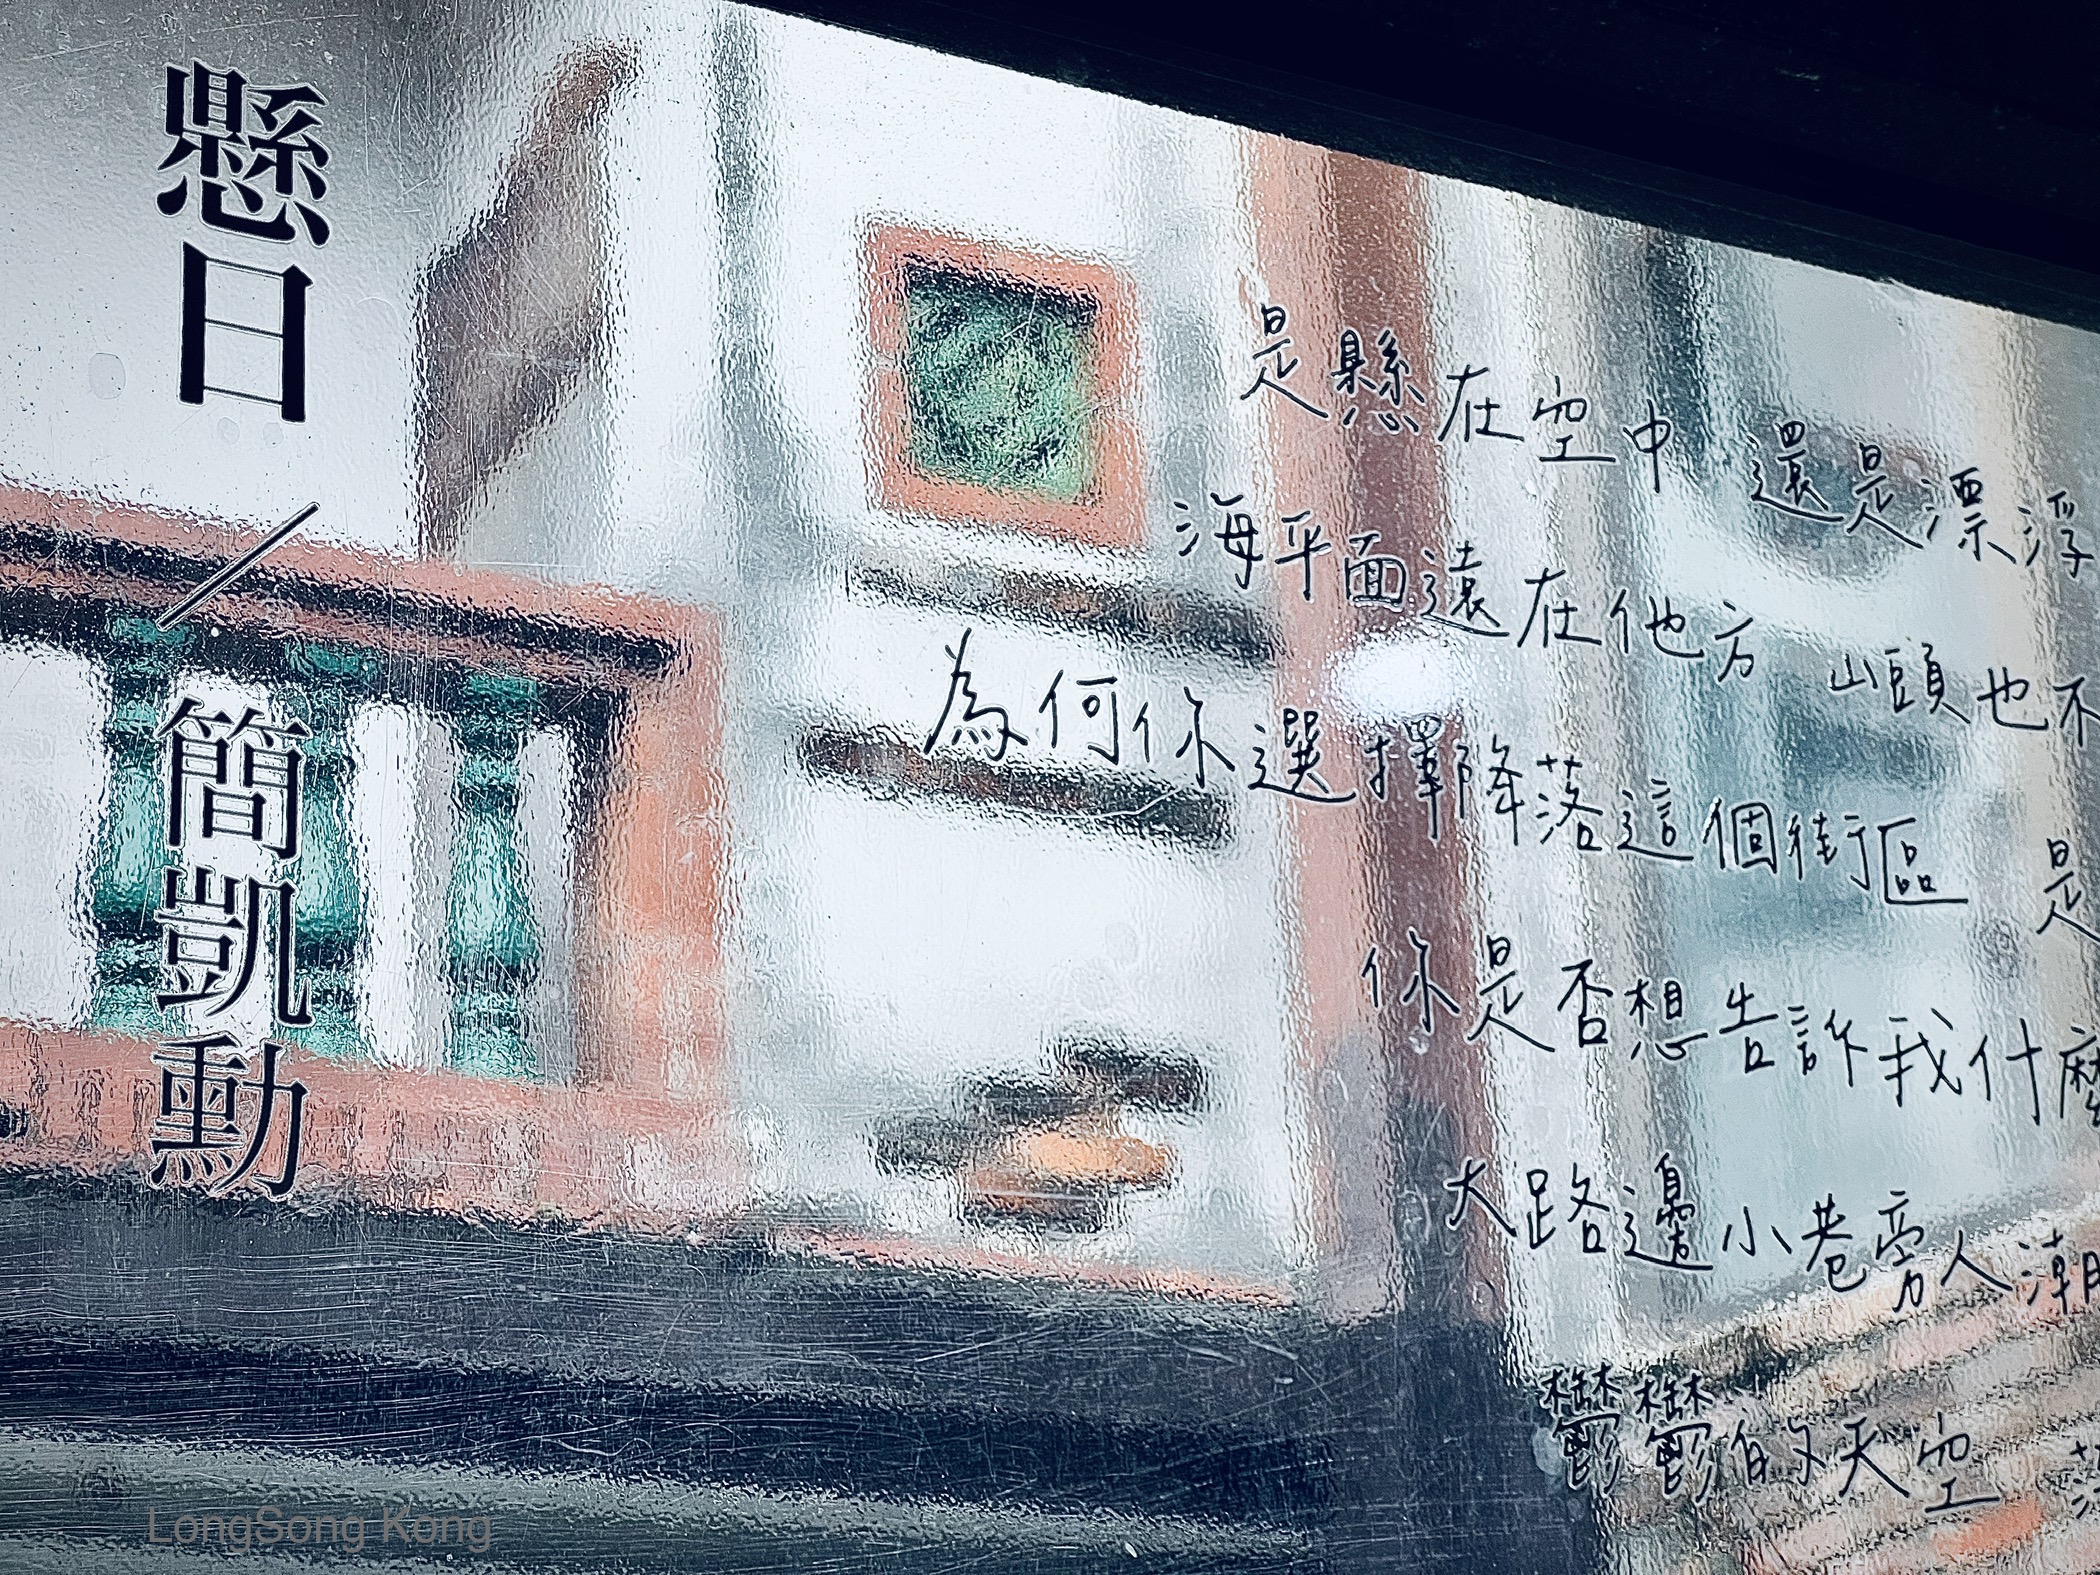 懸日／簡凱勳
是懸在空中 還是漂浮
海平面遠在他方 山頭也不
為何你選擇降落這個街區 是
你是否想告訴我什麼
大路邊小巷旁人潮
鬱鬱的天空
LongSong Kong